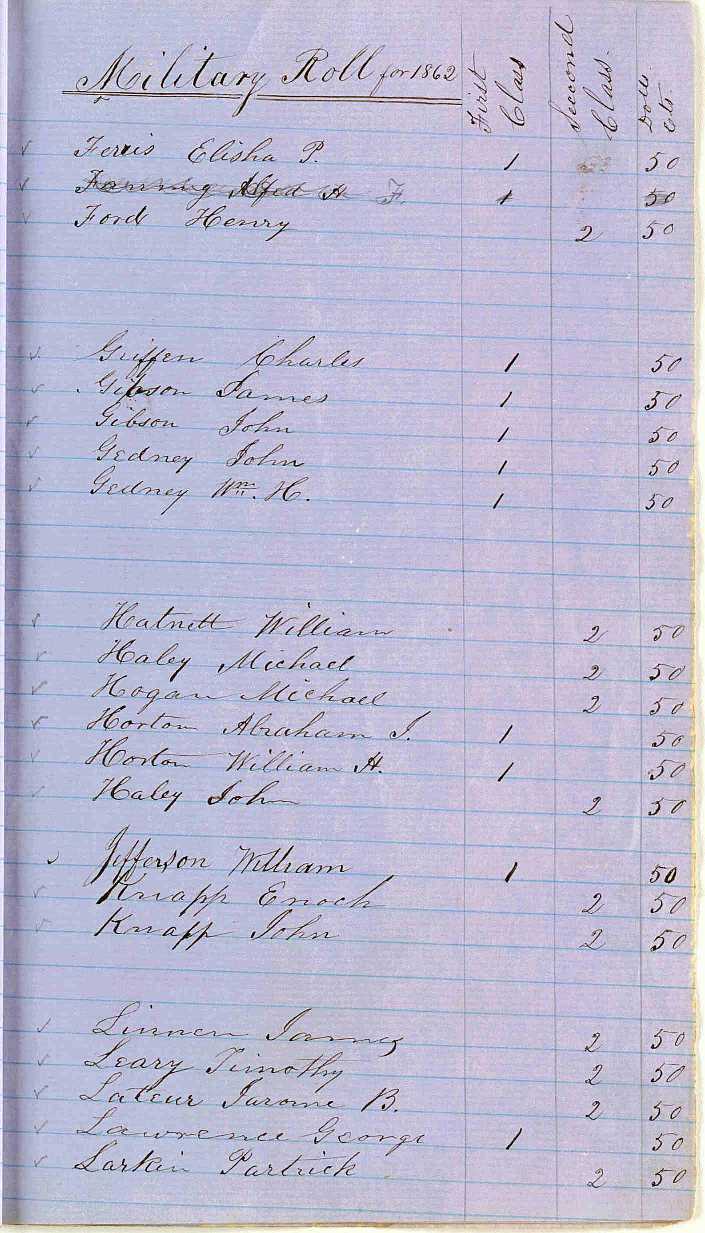 Military Roll for 1862 First Class Seccond Class. Dolls. Cts.
Ferris Elisha P. 1 50
Fanning Alfed H F. 1 50
Ford Henry 2 50
Griffen Charles 1 50
Gibson James 1 50
Gibson John 1 50
Gedney John 1 50
Gedney Wm. H. 1 50
Hatnett William 2 50
Haley Michael 2 50
Hogan Michael 2 50
Horton Abraham J. 1 50
Horton William H. 1 50
Haley John 2 50
Jefferson William 1 50
Knapp Enoch 2 50
Knapp John 2 50
Linnen James 2 50
Leary Timothy 2 50
Lateur Jarome B. 2 50
Lawrence George 1 50
Larkin Partrick 2 50